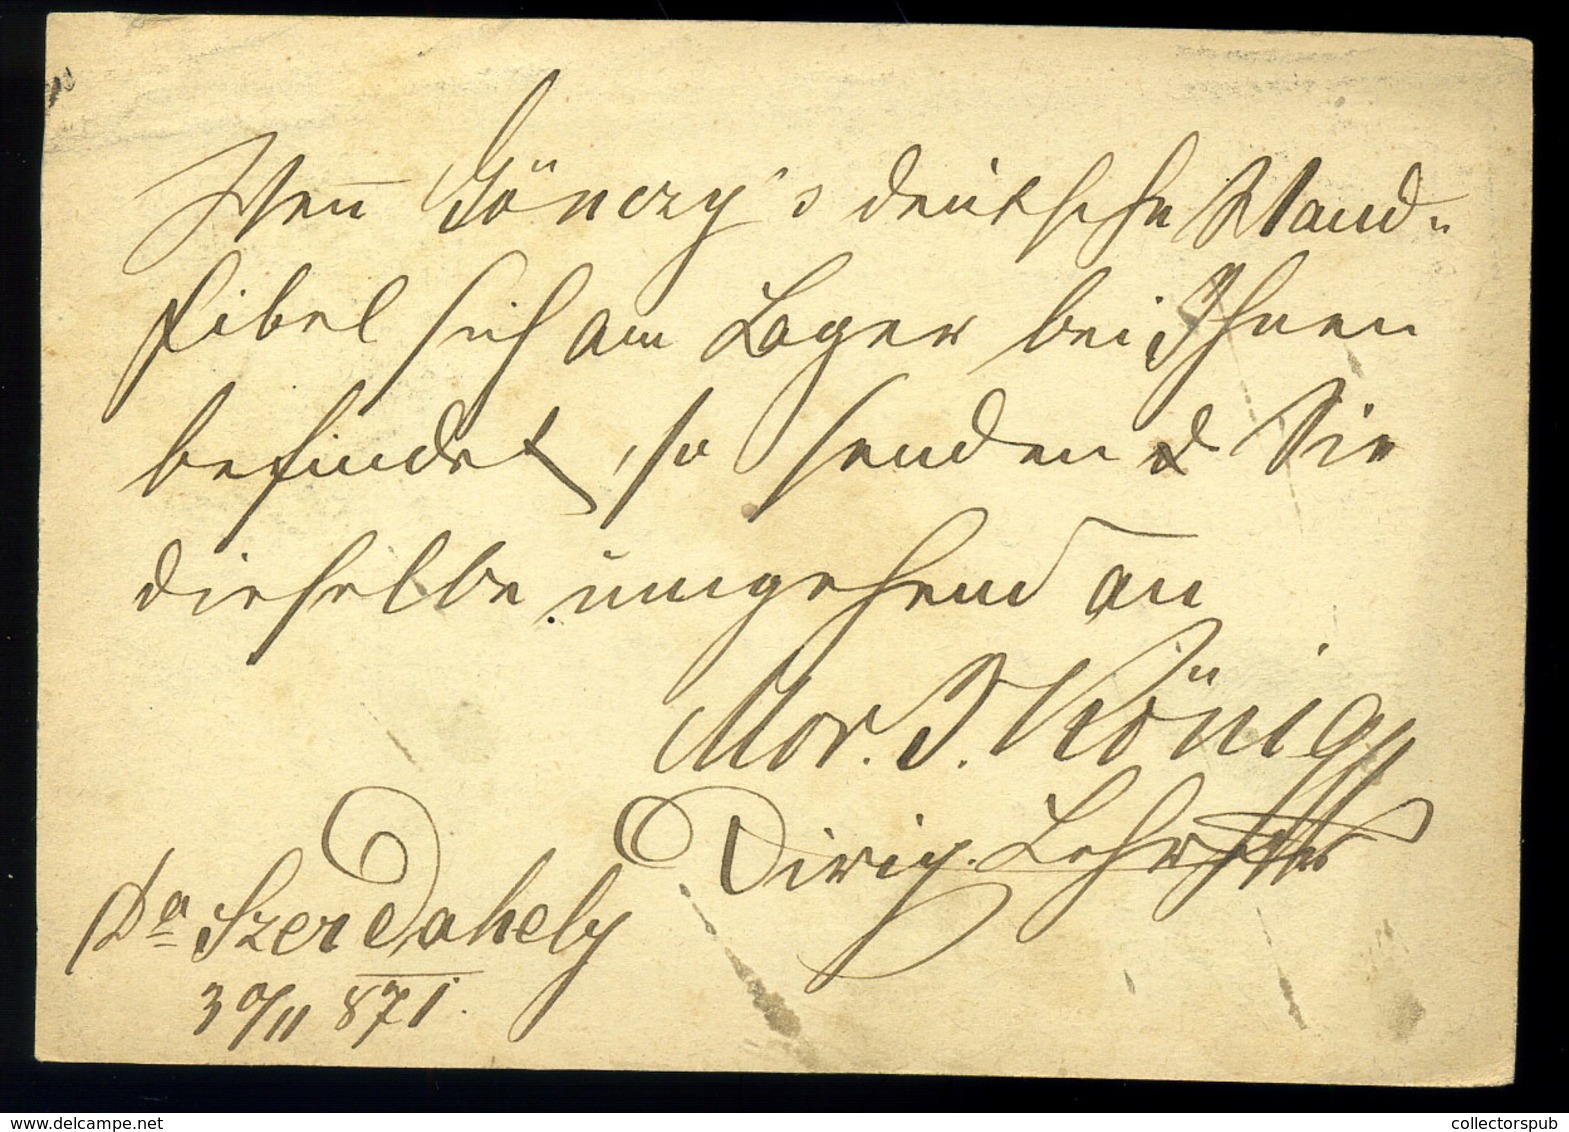 Wen̅ Gönczy's deutsche Wand-
fibel sich am Lager bei Ihnen
befindet, so senden Sie
dieselbe umgehend an
Mor. J. König
Dirig. Lehrer
Da Szerdahely
30/11 871.
www.delcampe.net
collectorspub